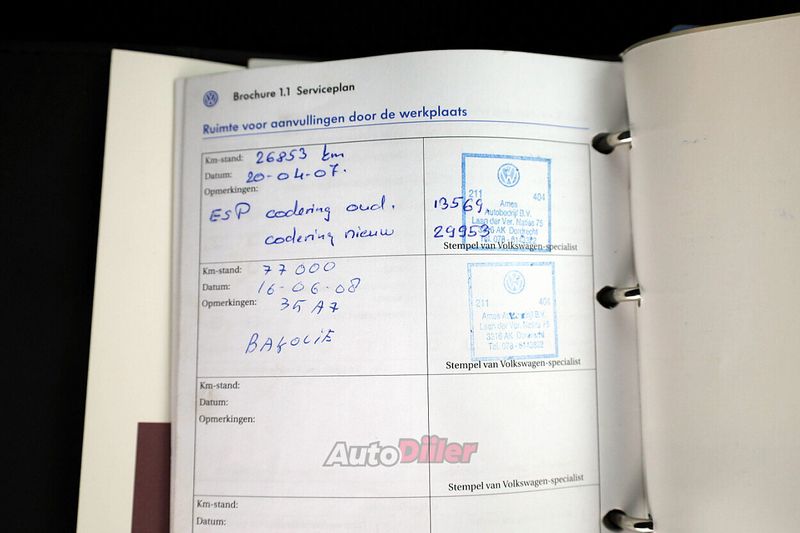 Brochure 1.1 Serviceplan
Ruimte voor aanvullingen door de werkplaats
Km-stand: 26853 km
Datum: 20-04-07.
Opmerkingen:
ESP codering oud. 13569
codering nieuw 29953
211 404
Ames
Autobedrijf B.V.
Laan der Ver. Naties 75
3316 AK Dordrecht
Tel. 078-
Stempel van Volkswagen-specialist
Km-stand: 77000
Datum: 16-06-08
Opmerkingen: 35 A7
211 404
Ames B.V.
Laan der Ver. Naties 75
3316 AK Dordrecht
Tel. 078-
Stempel van Volkswagen-specialist
Km-stand:
Datum:
Opmerkingen:
AutoDiler
Stempel van Volkswagen-specialist
Km-stand:
Datum: